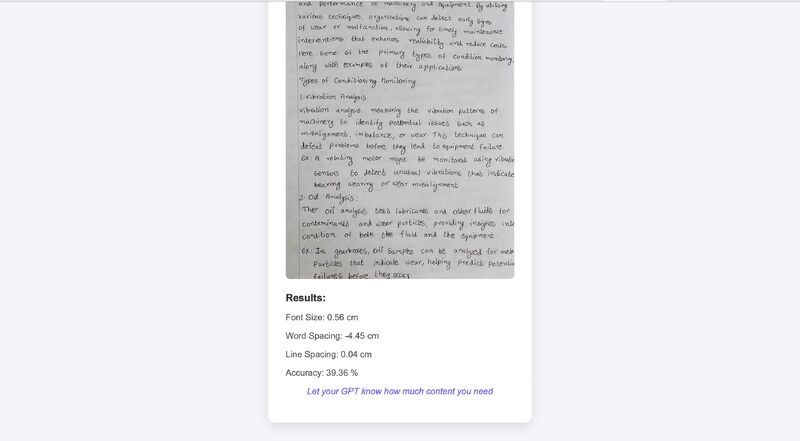 and performance of machinery and equipment By utilising
various techniques, organizations can detect early signs
of wear or malfunction, allowing for timely maintenance
interventions that enhances realiability and reduce costs
Here some of the primary types of condition monitoring,
along with examples of their applications.
Types of Conditioning Monitoring
1. Vibration Analysis
vibration analysis measuring the vibration patterns of
machinery to identify potential issues such as
misalignment, imbalance, or wear This technique can
defeat problems before they lead to equipment failure
EX: A rotating motor might be monitored using vibratio
sensors to detect unusual vibrations that indicate
bearing wearing or wear misalignment
2. Oil Analysis:
Ther oil analysis test lubricants and other fluids for
contaminants and wear particles, providing insights into
condition of both the fluid and the equipment.
EX: In gearboxes, oil samples can be analysed for meta
particles that indicate wear, helping predict potentia
failures before they occur.
Results:
Font Size: 0.56 cm
Word Spacing: -4.45 cm
Line Spacing: 0.04 cm
Accuracy: 39.36 %
Let your GPT know how much content you need